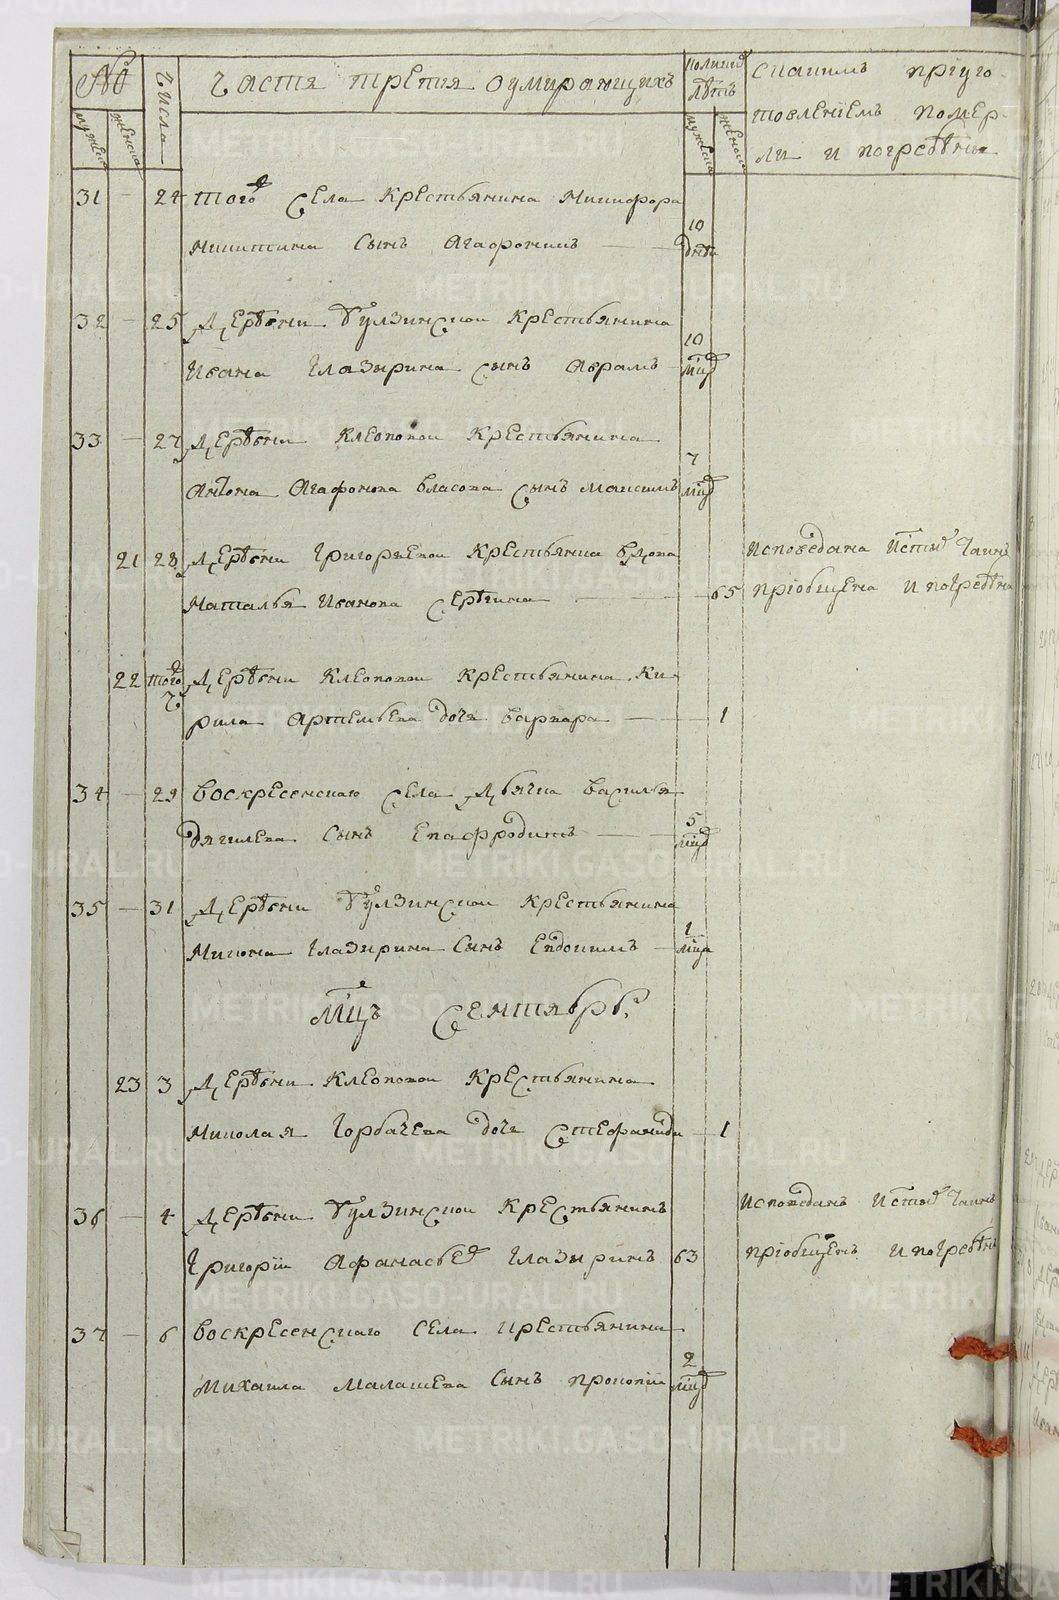 №
Числа
Часть третия о умирающихъ
колики лѣтъ
с какимъ пріуго
товленіемъ помер-
ли и погребены
мужеска
женска
мужеска
женска
31 — 24 того села крестьянина Никифора
Никитина сынъ Агафоникъ — 10 дней
32 — 25 Деревни Булзинскои крестьянина
Ивана Глазырина сынъ Аврамъ 10 мцъ
33 — 27 Деревни Клепопои крестьянина
Антона Агафонова Власова сынъ Максимъ 7 мцъ
21 28 Деревни Григорьевои крестьянка вдова
Исповедана и Стыхъ таинъ
Наталья Иванова — 65
пріобщена и погребена
22 того ч. Деревни Клепопои крестьянина Ки-
рила Артемьева дочь Варвара — 1
34 — 29 Воскресенскаго села дьячка Василья
Дягилева сынъ Епафродитъ — 5 мцъ
35 — 31 Деревни Булзинскои крестьянина
Никона Глазирина сынъ Евдокимъ — 1 мца
Мцъ Сентябрь.
23 3 Деревни Клепопои крестьянина
Николая Горбачева дочь Стефанида — 1
36 — 4 Деревни Булзинскои крестьянинъ
Исповеданъ и Стыхъ таинъ
Григоріи Афанасьевъ Глазыринъ 63
пріобщенъ и погребенъ
37 — 6 Воскресенскаго села крестьянина
Михаила Малашева сынъ Прокопіи 2 мцъ
METRIKI.GASO-URAL.RU